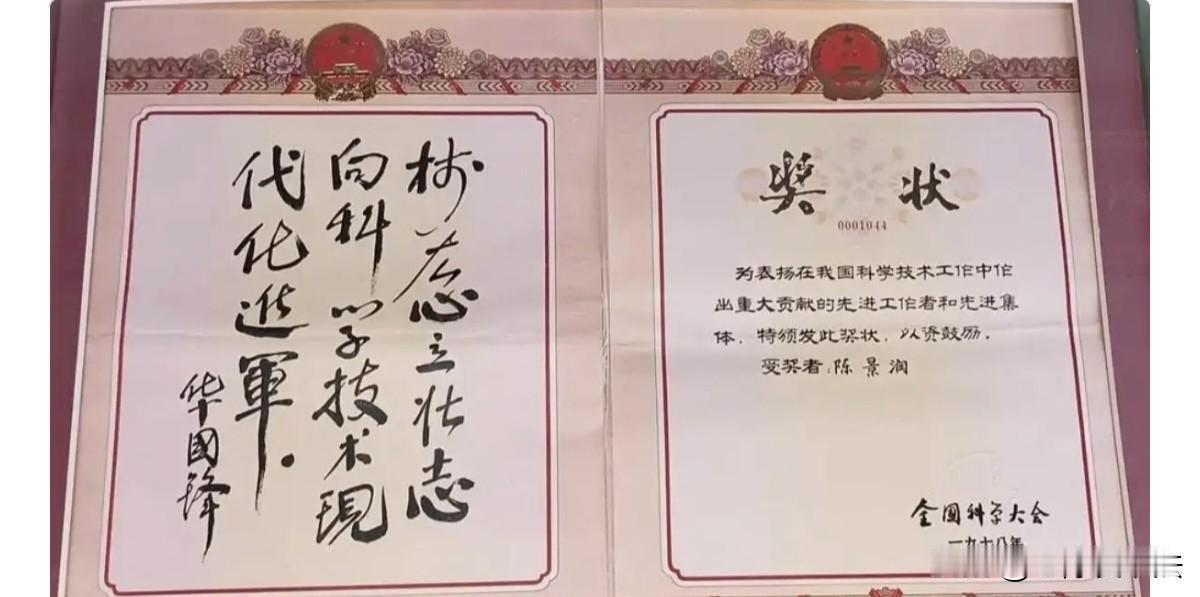 树雄心立壮志
向科学技术現
代化進軍。
华國鋒
奖状
0001044
为表扬在我国科学技术工作中作
出重大贡献的先进工作者和先进集
体，特颁发此奖状，以资鼓励。
受奖者：陈景润
全国科学大会
一九七八年